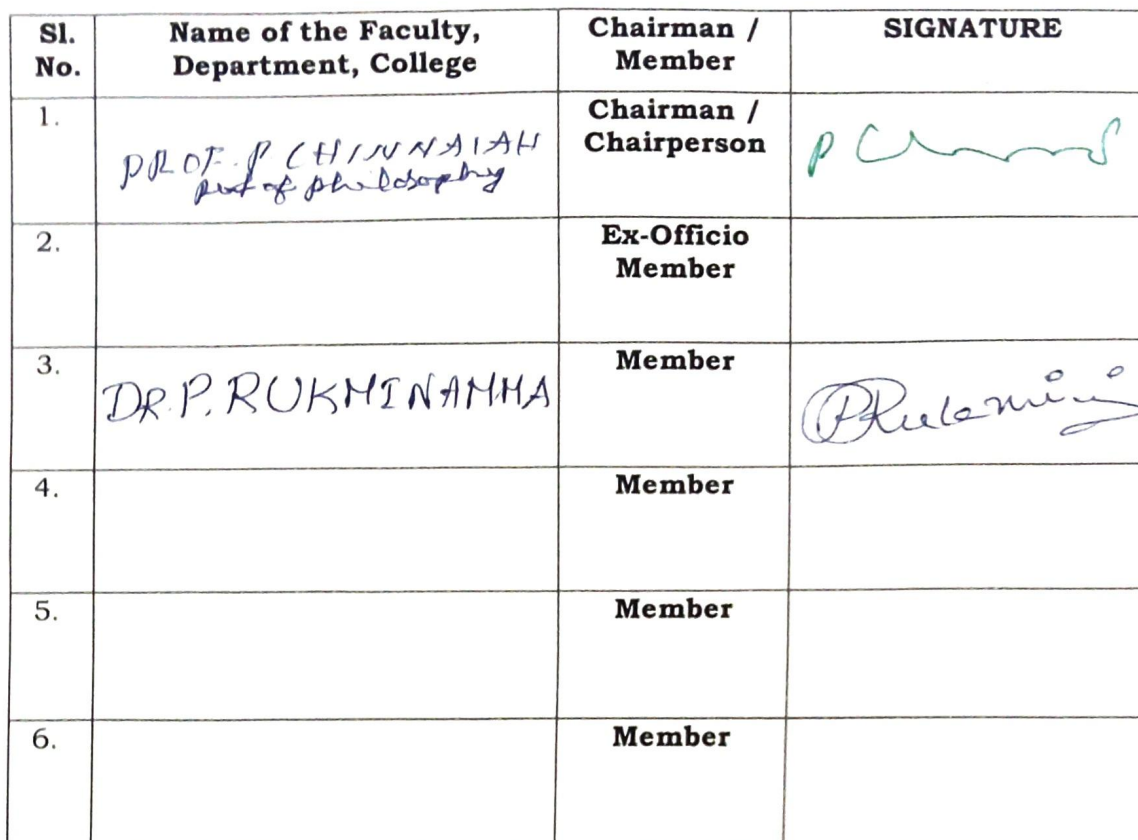 Sl. No.
Name of the Faculty, Department, College
Chairman / Member
SIGNATURE
1.
PROF. P CHINNAIAH
of philosophy
Chairman / Chairperson
P
2.
Ex-Officio Member
3.
DR. P. RUKMINAMMA
Member
PRukmini
4.
Member
5.
Member
6.
Member